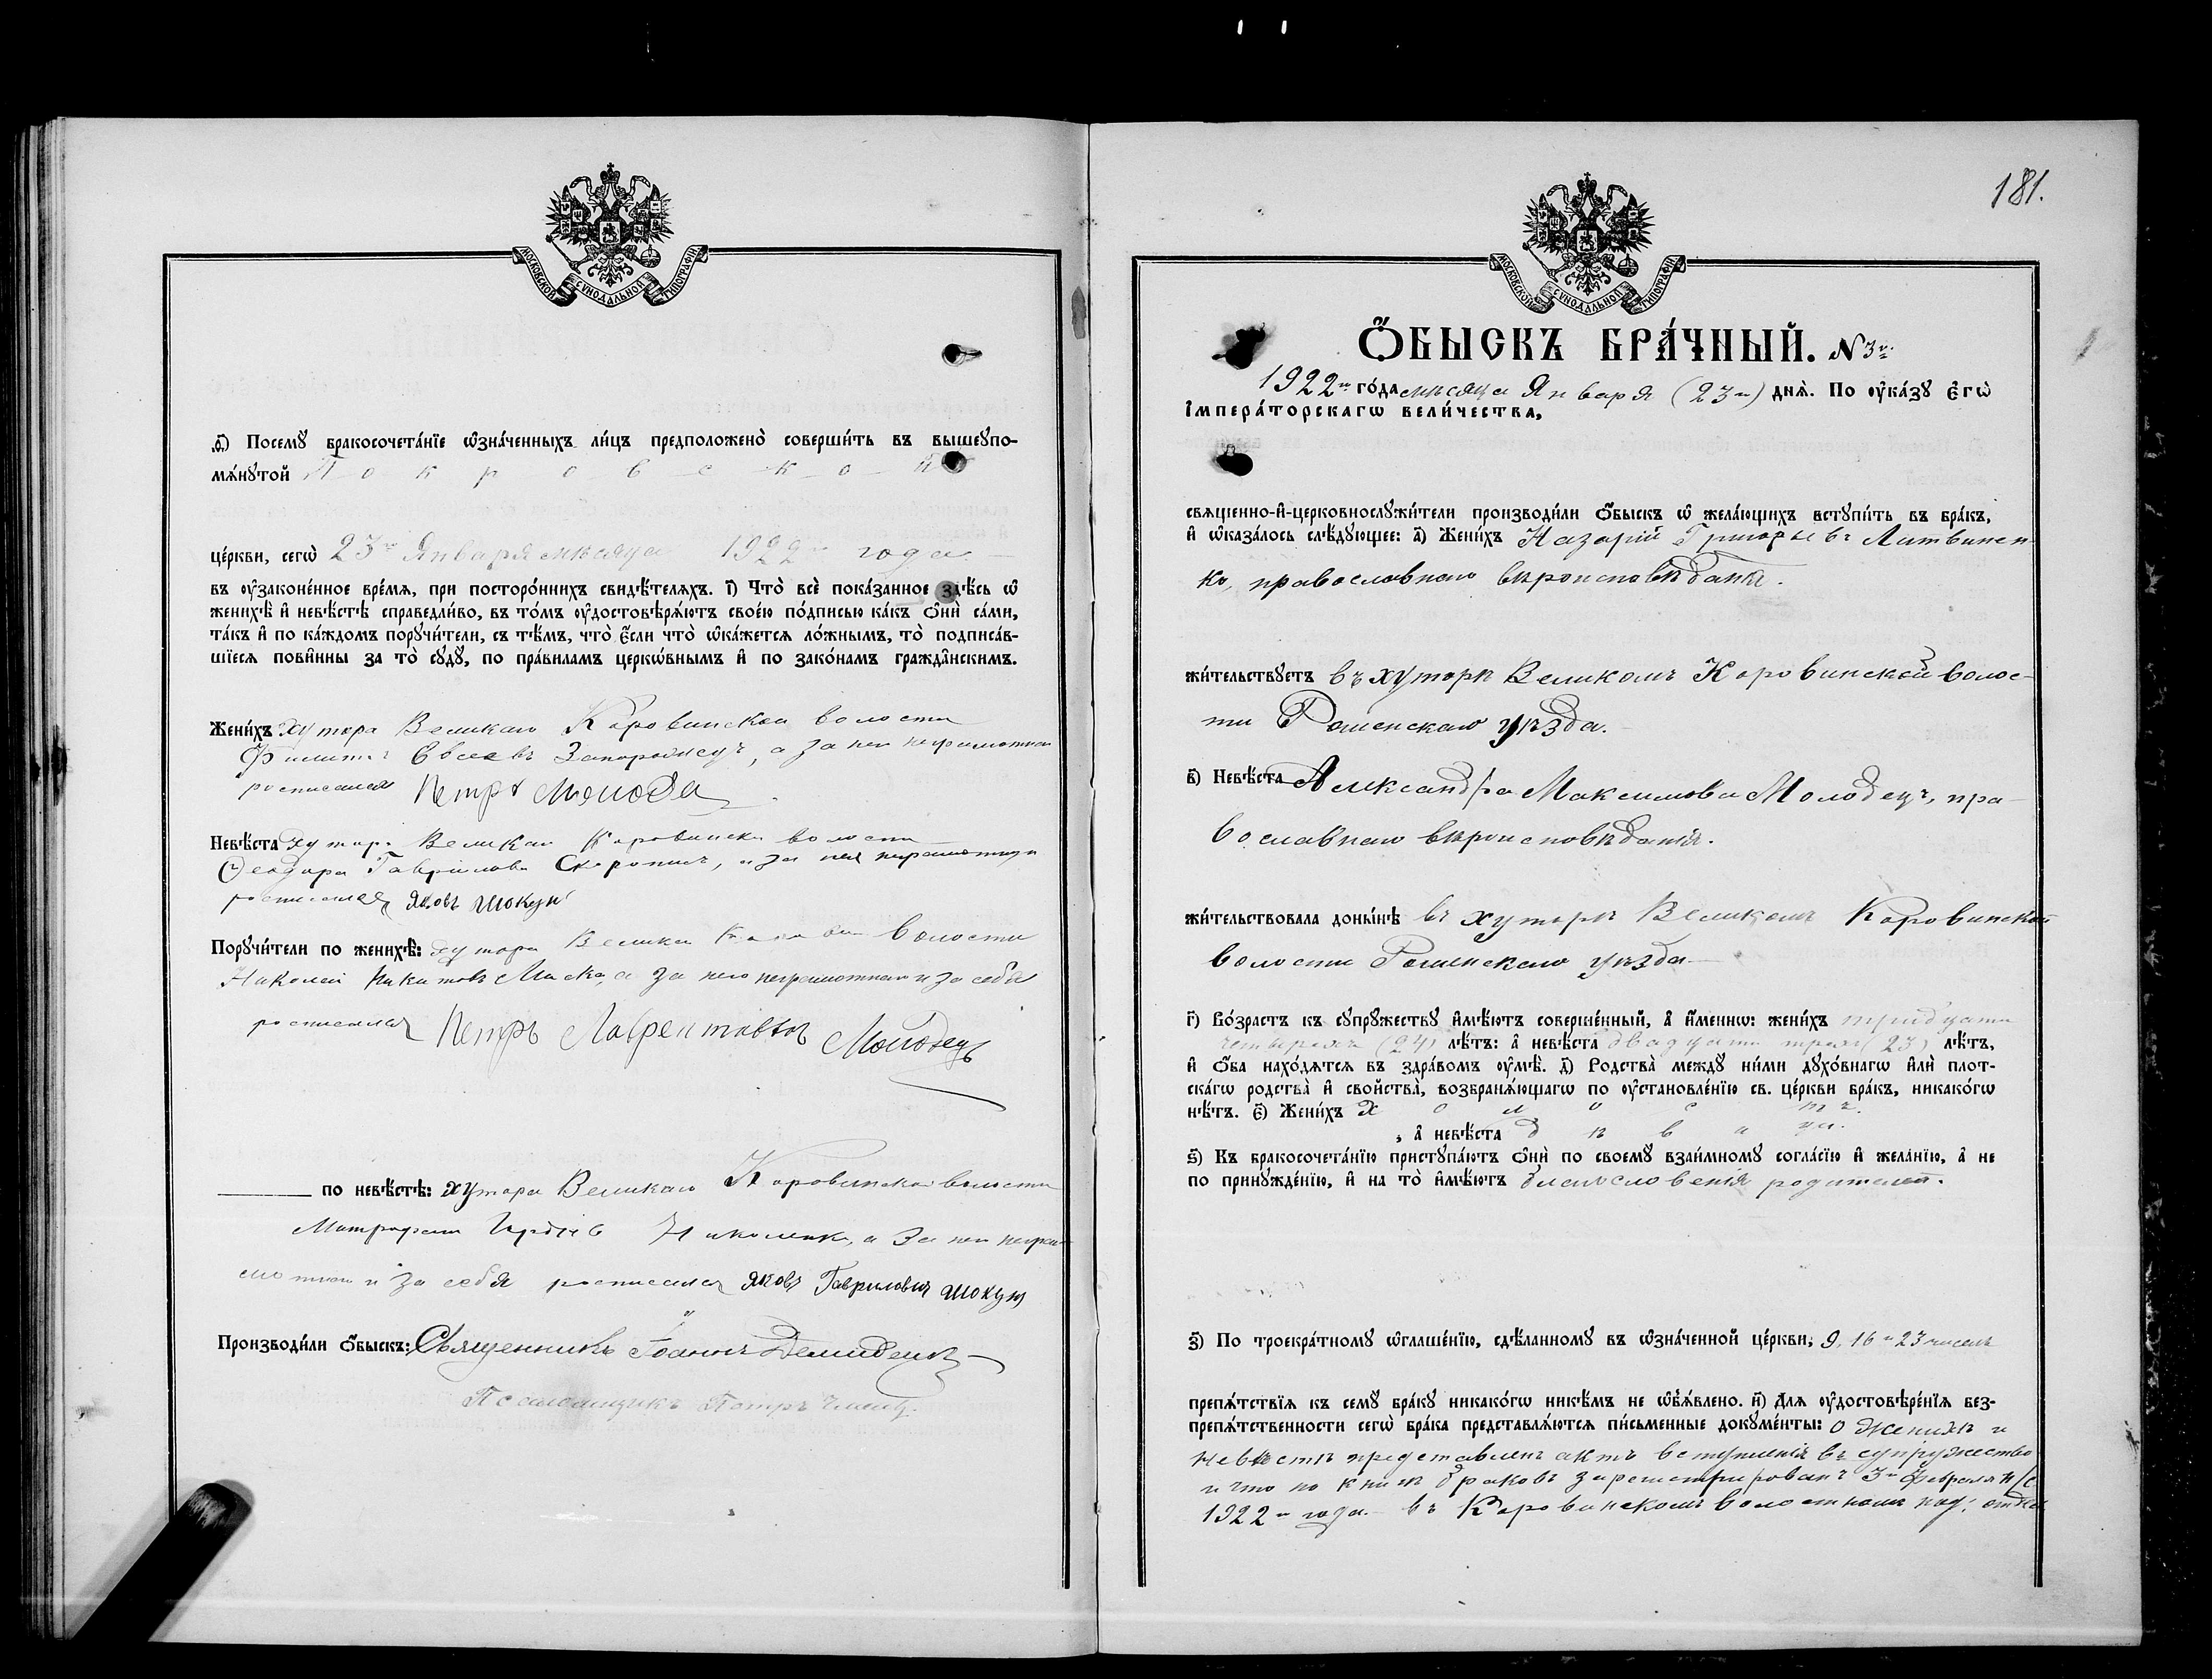 МОСКОВСКОЙ СУНОДАЛЬНОЙ ТИПОГРАФІИ
ѳ҃) Посемꙋ̀ бракосочета́нїе ѡ҆зна́ченныхъ ли́цъ предположено̀ соверши́ть въ вышеꙋпо-
мѧ́нꙋтой Покровской
це́ркви, сегѡ̀ 23го Января мѣсяца 1922го года
въ ᲂу҆зако́нєнное вре́мѧ, при посторо́ннихъ свидѣ́телѧхъ. і҃) Что̀ всѐ пока́занное здѣ́сь ѡ҆
женихѣ̀ и҆ невѣ́стѣ справедли́во, въ то́мъ ᲂу҆достовѣрѧ́ютъ свое́ю по́дписью ка́къ ѻ҆нѝ са́ми,
та́къ и҆ по ка́ждомъ порꙋчи́тели, съ тѣ́мъ, что̀ є҆́сли что̀ ѡ҆ка́жетсѧ ло́жнымъ, то̀ подписа́в-
шїесѧ пови́нны за то̀ сꙋдꙋ̀, по пра́виламъ церкѡ́внымъ и҆ по зако́намъ гражда̑нскимъ.
Жени́хъ хутора Великаго Коровинской волости
Филиппъ Евсеевъ Запорожецъ, а за него неграмотнаго
росписался Петръ Молода
Невѣ́ста хутора Великаго Коровинской волости
Ѳеодора Гаврилова Скоропичъ, а за нея неграмотную
росписался Яковъ Шокун
Порꙋчи́тели по женихѣ̀: хутора Великаго волости
Николай Никитовъ а за него неграмотнаго и за себя
росписался Петръ Лаврентіевъ Молодецъ
по невѣ́стѣ: хутора Великаго Коровинской волости
Митрофанъ Николенко, а за него негра-
мотнаго и за себя росписался Яковъ Гавриловичъ Шокун
Производи́ли ѻ҆́быскъ: Священникъ Іоаннъ
Псаломщикъ Петръ
181.
МОСКОВСКОЙ СУНОДАЛЬНОЙ ТИПОГРАФІИ
Ѻ҆́БЫСКЪ БРА́ЧНЫЙ. N 3й.
1922го го́да мѣсяца Января (23го) днѧ̀. По ᲂу҆ка́зꙋ є҆гѡ̀
і҆мпера́торскагѡ вели́чества,
свѧще́нно-и҆-церковнослꙋжи́тели производи́ли ѻ҆́быскъ ѡ҆ жела́ющихъ встꙋпи́ть въ бра́къ,
и҆ ѡ҆каза́лось слѣ́дꙋющее: а҃) Жени́хъ Назарій Григорьевъ Литвинен-
ко, православнаго вѣроисповѣданія.
жи́тельствꙋетъ въ хуторѣ Великомъ Коровинской волос-
ти Роменскаго уѣзда.
в҃) Невѣ́ста Александра Максимова Молодецъ, пра-
вославнаго вѣроисповѣданія.
жи́тельствовала доны́нѣ въ хуторѣ Великомъ Коровинской
волости Роменскаго уѣзда
г҃) Во́зрастъ къ сꙋпрꙋ́жествꙋ и҆мѣ́ютъ соверше́нный, а҆ и҆́меннѡ: жени́хъ тридцати
четырехъ (24) лѣ́тъ: а҆ невѣ́ста двадцати трехъ (23) лѣ́тъ,
и҆ ѻ҆́ба нахо́дѧтсѧ въ здра́вомъ ᲂу҆мѣ̀. д҃) Родства̀ междꙋ̀ ни́ми дꙋхо́внагѡ и҆лѝ плот-
ска́гѡ родства̀ и҆ сво́йства̀, возбранѧ́ющагѡ по ᲂу҆становле́нїю св. це́ркви бра́къ, никако́гѡ
нѣ́тъ. є҃) Жени́хъ холостъ.
, а҆ невѣ́ста дѣвица.
ѕ҃) Къ бракосочета́нїю пристꙋпа́ютъ ѻ҆нѝ по своемꙋ̀ взаи́мномꙋ согла́сїю и҆ жела́нїю, а҆ не
по принꙋжде́нїю, и҆ на то̀ и҆мѣ́ютъ благословенія родителей.
з҃) По троекра́тномꙋ ѡ҆глаше́нїю, сдѣ́ланномꙋ въ ѡ҆зна́ченной це́ркви, 9, 16 и 23 чиселъ
препѧ́тствїѧ къ семꙋ̀ бра́кꙋ никако́гѡ никѣ́мъ не ѡ҆б̾ѧ́влено. и҃) Длѧ ᲂу҆достовѣре́нїѧ без-
препѧ́тственности сегѡ̀ бра́ка представлѧ́ютсѧ пи́сьменные докꙋме́нты: о женихѣ и
невѣстѣ представленъ актъ вступленія въ супружество
и что по книгѣ браковъ зарегистрированъ 3го февраля н/с
1922го года въ Коровинскомъ волостномъ